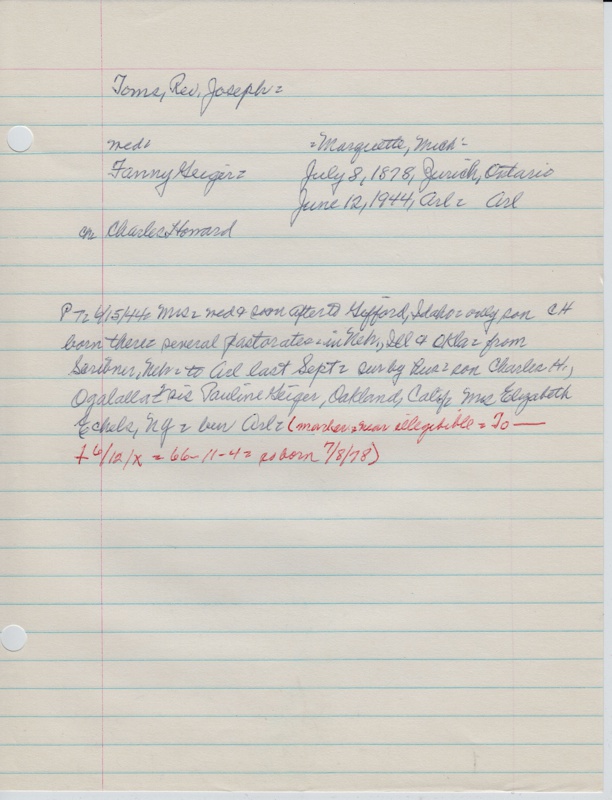 Toms, Rev. Joseph=
med+ =Marquette, Mich=
Fanny Geiger= July 8, 1878, Zurich, Ontario
June 12, 1944, Arl= Arl
ch Charles Howard
PT= 6/15/44= Mrs= med+ soon after to Gifford, Idaho= only son CH
born there= several pastorates= in Nebr, Ill + Okla= from
Scribner, Nebr= to Arl last Sept= sur by hus= son Charles H.,
Ogalalla= sis Pauline Geiger, Oakland, Calif= Mrs Elizabeth
Echels, = bur Arl= (marker= near illegibible= To—
+ 6/12/x = 66-11-4= so born 7/8/78)